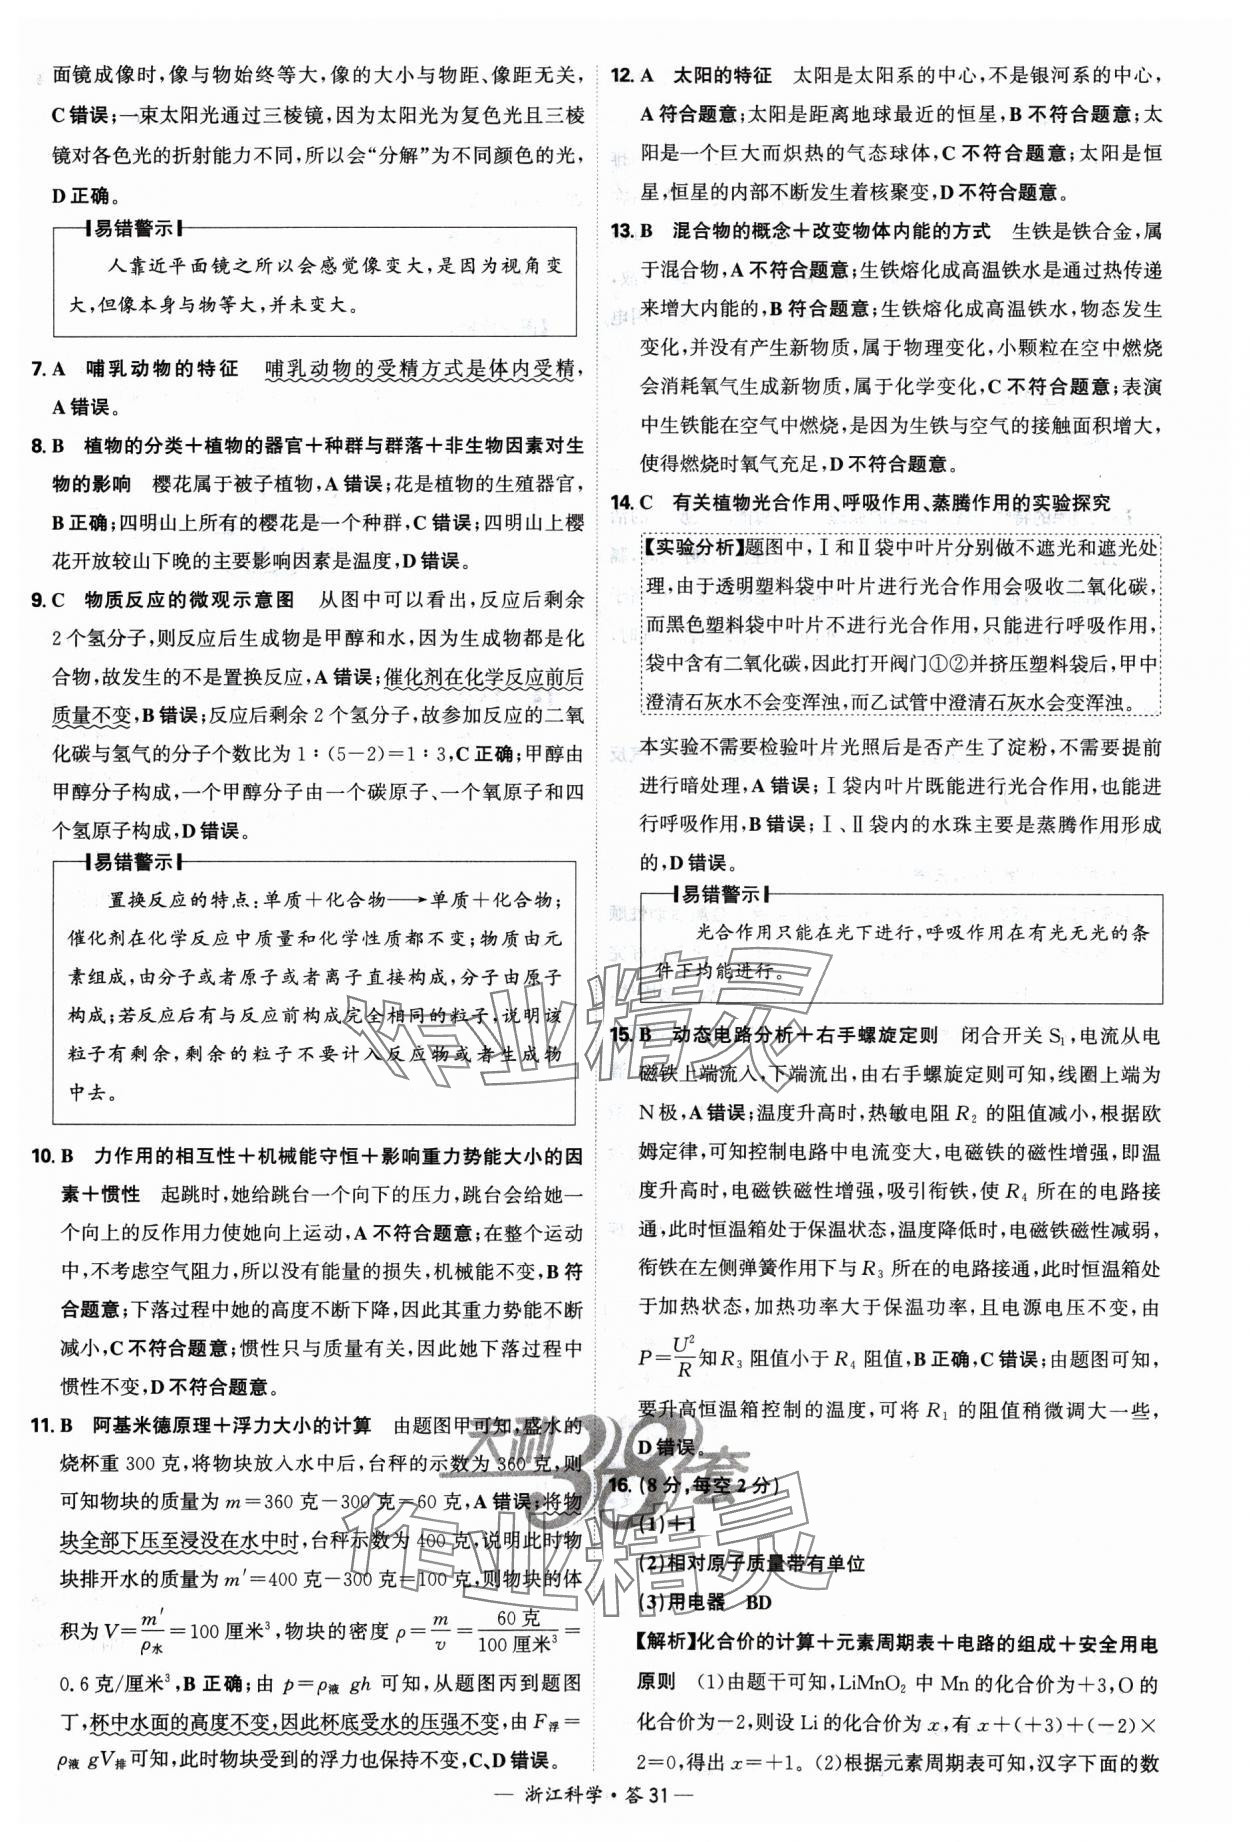 面镜成像时,像与物始终等大,像的大小与物距、像距无关,
C错误;一束太阳光通过三棱镜,因为太阳光为复色光且三棱
镜对各色光的折射能力不同,所以会“分解”为不同颜色的光,
D正确。
易错警示
人靠近平面镜之所以会感觉像变大,是因为视角变
大,但像本身与物等大,并未变大。
7. A 哺乳动物的特征 哺乳动物的受精方式是体内受精,
A错误。
8. B 植物的分类+植物的器官+种群与群落+非生物因素对生
物的影响 樱花属于被子植物,A错误;花是植物的生殖器官,
B正确;四明山上所有的樱花是一个种群,C错误;四明山上樱
花开放较山下晚的主要影响因素是温度,D错误。
9. C 物质反应的微观示意图 从图中可以看出,反应后剩余
2个氢分子,则反应后生成物是甲醇和水,因为生成物都是化
合物,故发生的不是置换反应,A错误;催化剂在化学反应前后
质量不变,B错误;反应后剩余2个氢分子,故参加反应的二氧
化碳与氢气的分子个数比为1∶(5-2)=1∶3,C正确;甲醇由
甲醇分子构成,一个甲醇分子由一个碳原子、一个氧原子和四
个氢原子构成,D错误。
易错警示
置换反应的特点:单质+化合物——→单质+化合物;
催化剂在化学反应中质量和化学性质都不变;物质由元
素组成,由分子或者原子或者离子直接构成,分子由原子
构成;若反应后有与反应前构成完全相同的粒子,说明该
粒子有剩余,剩余的粒子不要计入反应物或者生成物
中去。
10. B 力作用的相互性+机械能守恒+影响重力势能大小的因
素+惯性 起跳时,她给跳台一个向下的压力,跳台会给她一
个向上的反作用力使她向上运动,A不符合题意;在整个运动
中,不考虑空气阻力,所以没有能量的损失,机械能不变,B符
合题意;下落过程中她的高度不断下降,因此其重力势能不断
减小,C不符合题意;惯性只与质量有关,因此她下落过程中
惯性不变,D不符合题意。
11. B 阿基米德原理+浮力大小的计算 由题图甲可知,盛水的
烧杯重300克,将物块放入水中后,台秤的示数为360克,则
可知物块的质量为m=360克-300克=60克,A错误;将物
块全部下压至浸没在水中时,台秤示数为400克,说明此时物
块排开水的质量为m′=400克-300克=100克,则物块的体
积为V=m′/ρ水=100厘米³,物块的密度ρ=m/v=60克/100厘米³=
0.6克/厘米³,B正确;由p=ρ液gh可知,从题图丙到题图
丁,杯中水面的高度不变,因此杯底受水的压强不变,由F浮=
ρ液gV排可知,此时物块受到的浮力也保持不变,C、D错误。
12. A 太阳的特征 太阳是太阳系的中心,不是银河系的中心,
A符合题意;太阳是距离地球最近的恒星,B不符合题意;太
阳是一个巨大而炽热的气态球体,C不符合题意;太阳是恒
星,恒星的内部不断发生着核聚变,D不符合题意。
13. B 混合物的概念+改变物体内能的方式 生铁是铁合金,属
于混合物,A不符合题意;生铁熔化成高温铁水是通过热传递
来增大内能的,B符合题意;生铁熔化成高温铁水,物态发生
变化,并没有产生新物质,属于物理变化,小颗粒在空中燃烧
会消耗氧气生成新物质,属于化学变化,C不符合题意;表演
中生铁能在空气中燃烧,是因为生铁与空气的接触面积增大,
使得燃烧时氧气充足,D不符合题意。
14. C 有关植物光合作用、呼吸作用、蒸腾作用的实验探究
【实验分析】题图中,Ⅰ和Ⅱ袋中叶片分别做不遮光和遮光处
理,由于透明塑料袋中叶片进行光合作用会吸收二氧化碳,
而黑色塑料袋中叶片不进行光合作用,只能进行呼吸作用,
袋中含有二氧化碳,因此打开阀门①②并挤压塑料袋后,甲中
澄清石灰水不会变浑浊,而乙试管中澄清石灰水会变浑浊。
本实验不需要检验叶片光照后是否产生了淀粉,不需要提前
进行暗处理,A错误;Ⅰ袋内叶片既能进行光合作用,也能进
行呼吸作用,B错误;Ⅰ、Ⅱ袋内的水珠主要是蒸腾作用形成
的,D错误。
易错警示
光合作用只能在光下进行,呼吸作用在有光无光的条
件下均能进行。
15. B 动态电路分析+右手螺旋定则 闭合开关S₁,电流从电
磁铁上端流入,下端流出,由右手螺旋定则可知,线圈上端为
N极,A错误;温度升高时,热敏电阻R₂的阻值减小,根据欧
姆定律,可知控制电路中电流变大,电磁铁的磁性增强,即温
度升高时,电磁铁磁性增强,吸引衔铁,使R₄所在的电路接
通,此时恒温箱处于保温状态,温度降低时,电磁铁磁性减弱,
衔铁在左侧弹簧作用下与R₃所在的电路接通,此时恒温箱处
于加热状态,加热功率大于保温功率,且电源电压不变,由
P=U²/R知R₃阻值小于R₄阻值,B正确,C错误;由题图可知,
要升高恒温箱控制的温度,可将R₁的阻值稍微调大一些,
D错误。
16. (8分,每空2分)
(1)+1
(2)相对原子质量带有单位
(3)用电器 BD
【解析】化合价的计算+元素周期表+电路的组成+安全用电
原则 (1)由题干可知,LiMnO₂中Mn的化合价为+3,O的
化合价为-2,则设Li的化合价为x,有x+(+3)+(-2)×
2=0,得出x=+1。(2)根据元素周期表可知,汉字下面的数
— 浙江科学·答31 —
作业精灵
天利38套
作业精灵